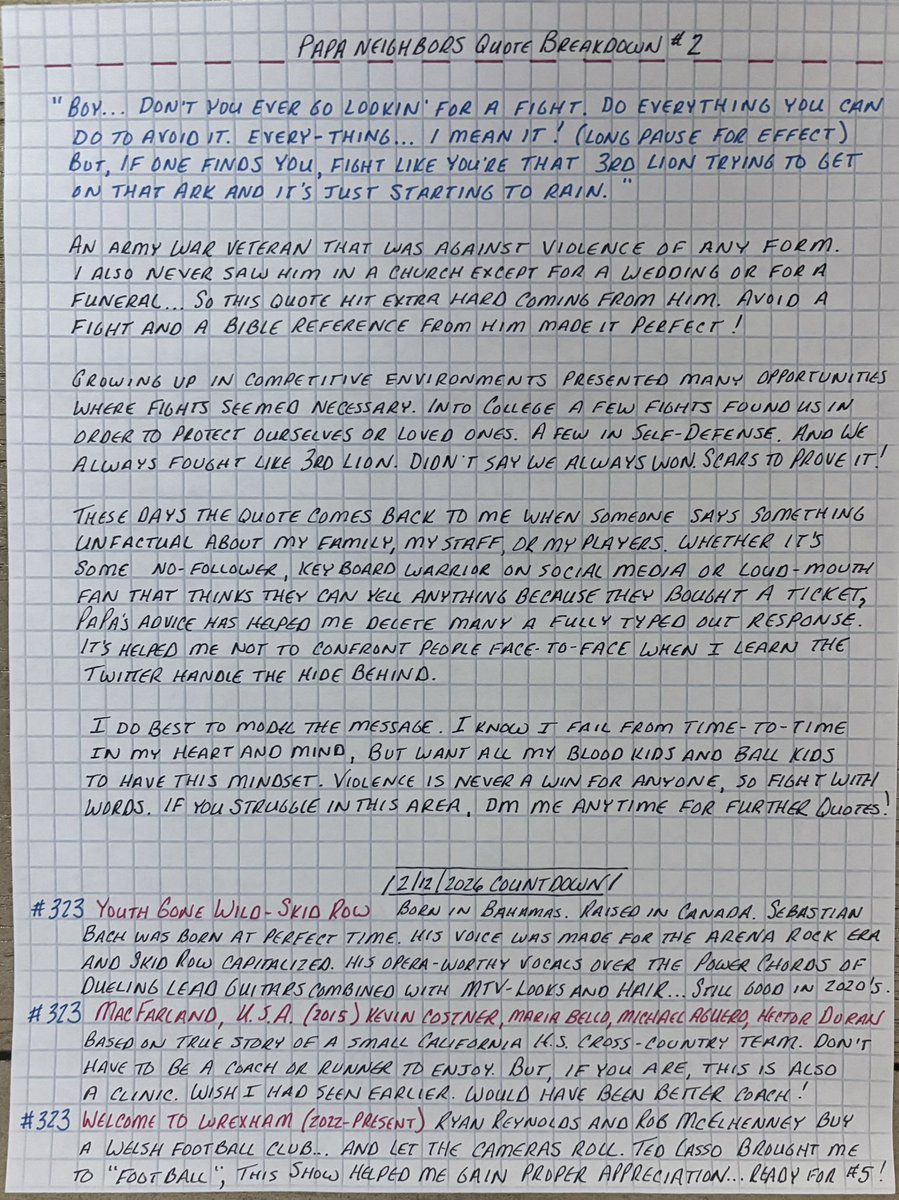 PAPA NEIGHBORS QUOTE BREAKDOWN #2
"BOY... DON'T YOU EVER GO LOOKIN' FOR A FIGHT. DO EVERYTHING YOU CAN
DO TO AVOID IT. EVERY-THING... I MEAN IT! (LONG PAUSE FOR EFFECT)
BUT, IF ONE FINDS YOU, FIGHT LIKE YOU'RE THAT 3RD LION TRYING TO GET
ON THAT ARK AND IT'S JUST STARTING TO RAIN."
AN ARMY WAR VETERAN THAT WAS AGAINST VIOLENCE OF ANY FORM.
I ALSO NEVER SAW HIM IN A CHURCH EXCEPT FOR A WEDDING OR FOR A
FUNERAL... SO THIS QUOTE HIT EXTRA HARD COMING FROM HIM. AVOID A
FIGHT AND A BIBLE REFERENCE FROM HIM MADE IT PERFECT!
GROWING UP IN COMPETITIVE ENVIRONMENTS PRESENTED MANY OPPORTUNITIES
WHERE FIGHTS SEEMED NECESSARY. INTO COLLEGE A FEW FIGHTS FOUND US IN
ORDER TO PROTECT OURSELVES OR LOVED ONES. A FEW IN SELF-DEFENSE. AND WE
ALWAYS FOUGHT LIKE 3RD LION. DIDN'T SAY WE ALWAYS WON. SCARS TO PROVE IT!
THESE DAYS THE QUOTE COMES BACK TO ME WHEN SOMEONE SAYS SOMETHING
UNFACTUAL ABOUT MY FAMILY, MY STAFF, OR MY PLAYERS. WHETHER IT'S
SOME NO-FOLLOWER, KEYBOARD WARRIOR ON SOCIAL MEDIA OR LOUD-MOUTH
FAN THAT THINKS THEY CAN YELL ANYTHING BECAUSE THEY BOUGHT A TICKET,
PAPA'S ADVICE HAS HELPED ME DELETE MANY A FULLY TYPED OUT RESPONSE.
IT'S HELPED ME NOT TO CONFRONT PEOPLE FACE-TO-FACE WHEN I LEARN THE
TWITTER HANDLE THE HIDE BEHIND.
I DO BEST TO MODEL THE MESSAGE. I KNOW I FAIL FROM TIME-TO-TIME
IN MY HEART AND MIND, BUT WANT ALL MY BLOOD KIDS AND BALL KIDS
TO HAVE THIS MINDSET. VIOLENCE IS NEVER A WIN FOR ANYONE, SO FIGHT WITH
WORDS. IF YOU STRUGGLE IN THIS AREA, DM ME ANYTIME FOR FURTHER QUOTES!
/2/12/2026 COUNTDOWN/
#323 YOUTH GONE WILD - SKID ROW BORN IN BAHAMAS. RAISED IN CANADA. SEBASTIAN
BACH WAS BORN AT PERFECT TIME. HIS VOICE WAS MADE FOR THE ARENA ROCK ERA
AND SKID ROW CAPITALIZED. HIS OPERA-WORTHY VOCALS OVER THE POWER CHORDS OF
DUELING LEAD GUITARS COMBINED WITH MTV-LOOKS AND HAIR... STILL GOOD IN 2020'S.
#323 MACFARLAND, U.S.A. (2015) KEVIN COSTNER, MARIA BELLO, MICHAEL AGUERO, HECTOR DURAN
BASED ON TRUE STORY OF A SMALL CALIFORNIA H.S. CROSS-COUNTRY TEAM. DON'T
HAVE TO BE A COACH OR RUNNER TO ENJOY. BUT, IF YOU ARE, THIS IS ALSO
A CLINIC. WISH I HAD SEEN EARLIER. WOULD HAVE BEEN BETTER COACH!
#323 WELCOME TO WREXHAM (2022-PRESENT) RYAN REYNOLDS AND ROB MCELHENNEY BUY
A WELSH FOOTBALL CLUB... AND LET THE CAMERAS ROLL. TED LASSO BROUGHT ME
TO "FOOTBALL", THIS SHOW HELPED ME GAIN PROPER APPRECIATION... READY FOR #5!